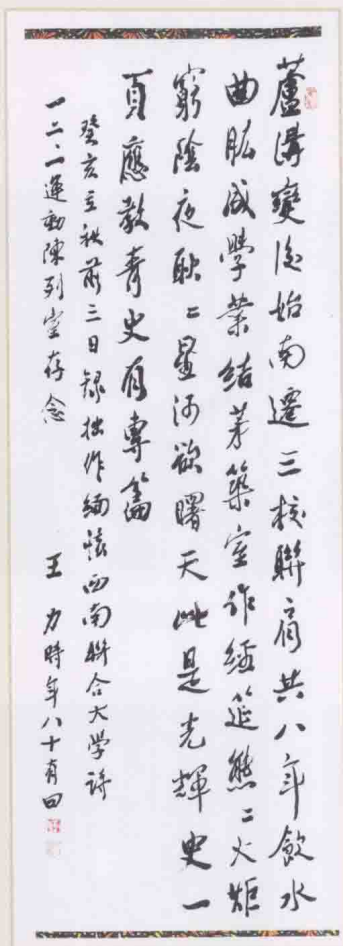 蘆溝變後始南遷三校聯肩共八年飲水
曲肱成學業結茅築室作經筵熊〻火炬
窮陰夜耿〻星河欲曙天此是光輝史一
頁應教青史有專篇
癸亥立秋前三日録拙作緬懷西南聯合大學詩
一二·一運動陳列室存念
王力時年八十有四